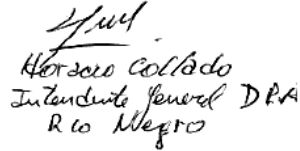 Horacio Collado
Intendente General DPA
Rio Negro